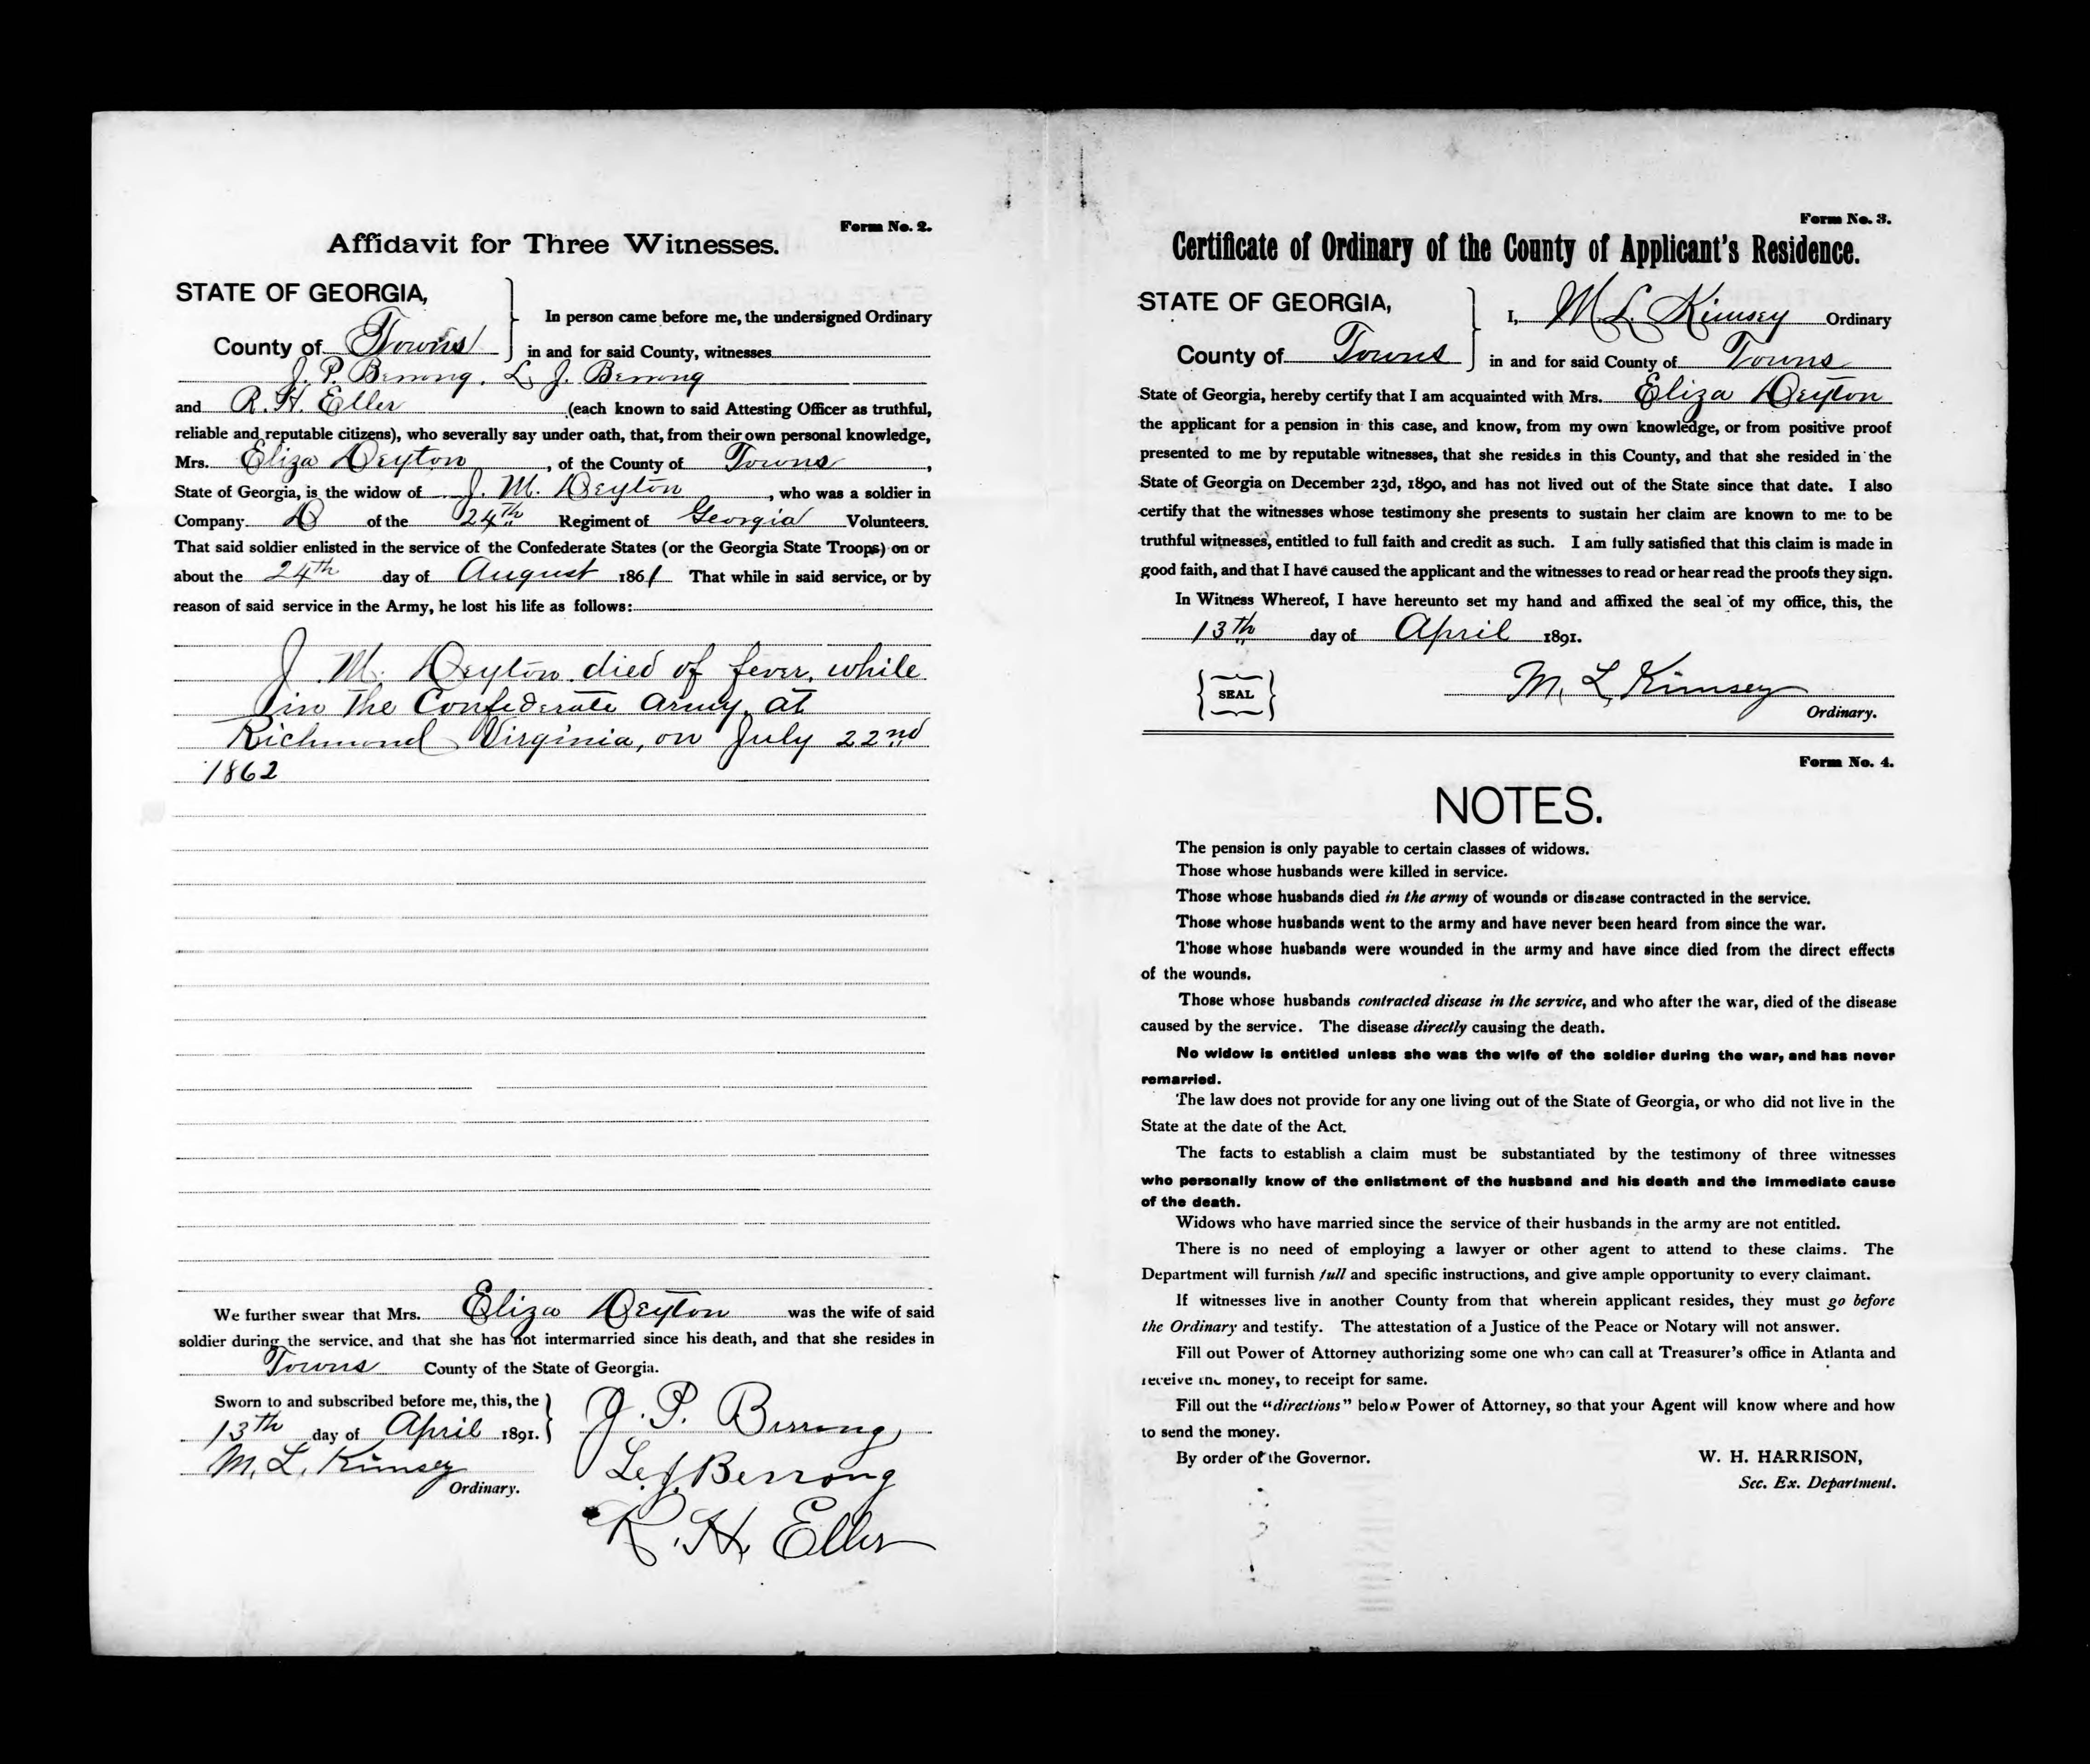 Form No. 2.
Affidavit for Three Witnesses.
STATE OF GEORGIA,
County of Towns
In person came before me, the undersigned Ordinary
in and for said County, witnesses
J. P. Berrong, L. J. Berrong
and R. H. Eller (each known to said Attesting Officer as truthful,
reliable and reputable citizens), who severally say under oath, that, from their own personal knowledge,
Mrs. Eliza Deyton, of the County of Towns,
State of Georgia, is the widow of J. M. Deyton, who was a soldier in
Company D of the 24th Regiment of Georgia Volunteers.
That said soldier enlisted in the service of the Confederate States (or the Georgia State Troops) on or
about the 24th day of August 1861 That while in said service, or by
reason of said service in the Army, he lost his life as follows:
J. M. Deyton died of fever, while
in the Confederate Army, at
Richmond Virginia, on July 22nd
1862
We further swear that Mrs. Eliza Deyton was the wife of said
soldier during the service, and that she has not intermarried since his death, and that she resides in
Towns County of the State of Georgia.
Sworn to and subscribed before me, this, the
13th day of April 1891.
M. L. Kimsey
Ordinary.
J. P. Berrong
L. J. Berrong
R. H. Eller
Form No. 3.
Certificate of Ordinary of the County of Applicant's Residence.
STATE OF GEORGIA,
County of Towns
I, M. L. Kimsey Ordinary
in and for said County of Towns
State of Georgia, hereby certify that I am acquainted with Mrs. Eliza Deyton
the applicant for a pension in this case, and know, from my own knowledge, or from positive proof
presented to me by reputable witnesses, that she resides in this County, and that she resided in the
State of Georgia on December 23d, 1890, and has not lived out of the State since that date. I also
certify that the witnesses whose testimony she presents to sustain her claim are known to me to be
truthful witnesses, entitled to full faith and credit as such. I am fully satisfied that this claim is made in
good faith, and that I have caused the applicant and the witnesses to read or hear read the proofs they sign.
In Witness Whereof, I have hereunto set my hand and affixed the seal of my office, this, the
13th day of April 1891.
SEAL
M. L. Kimsey
Ordinary.
Form No. 4.
NOTES.
The pension is only payable to certain classes of widows.
Those whose husbands were killed in service.
Those whose husbands died in the army of wounds or disease contracted in the service.
Those whose husbands went to the army and have never been heard from since the war.
Those whose husbands were wounded in the army and have since died from the direct effects
of the wounds.
Those whose husbands contracted disease in the service, and who after the war, died of the disease
caused by the service. The disease directly causing the death.
No widow is entitled unless she was the wife of the soldier during the war, and has never
remarried.
The law does not provide for any one living out of the State of Georgia, or who did not live in the
State at the date of the Act.
The facts to establish a claim must be substantiated by the testimony of three witnesses
who personally know of the enlistment of the husband and his death and the immediate cause
of the death.
Widows who have married since the service of their husbands in the army are not entitled.
There is no need of employing a lawyer or other agent to attend to these claims. The
Department will furnish full and specific instructions, and give ample opportunity to every claimant.
If witnesses live in another County from that wherein applicant resides, they must go before
the Ordinary and testify. The attestation of a Justice of the Peace or Notary will not answer.
Fill out Power of Attorney authorizing some one who can call at Treasurer's office in Atlanta and
receive the money, to receipt for same.
Fill out the "directions" below Power of Attorney, so that your Agent will know where and how
to send the money.
By order of the Governor.
W. H. HARRISON,
Sec. Ex. Department.